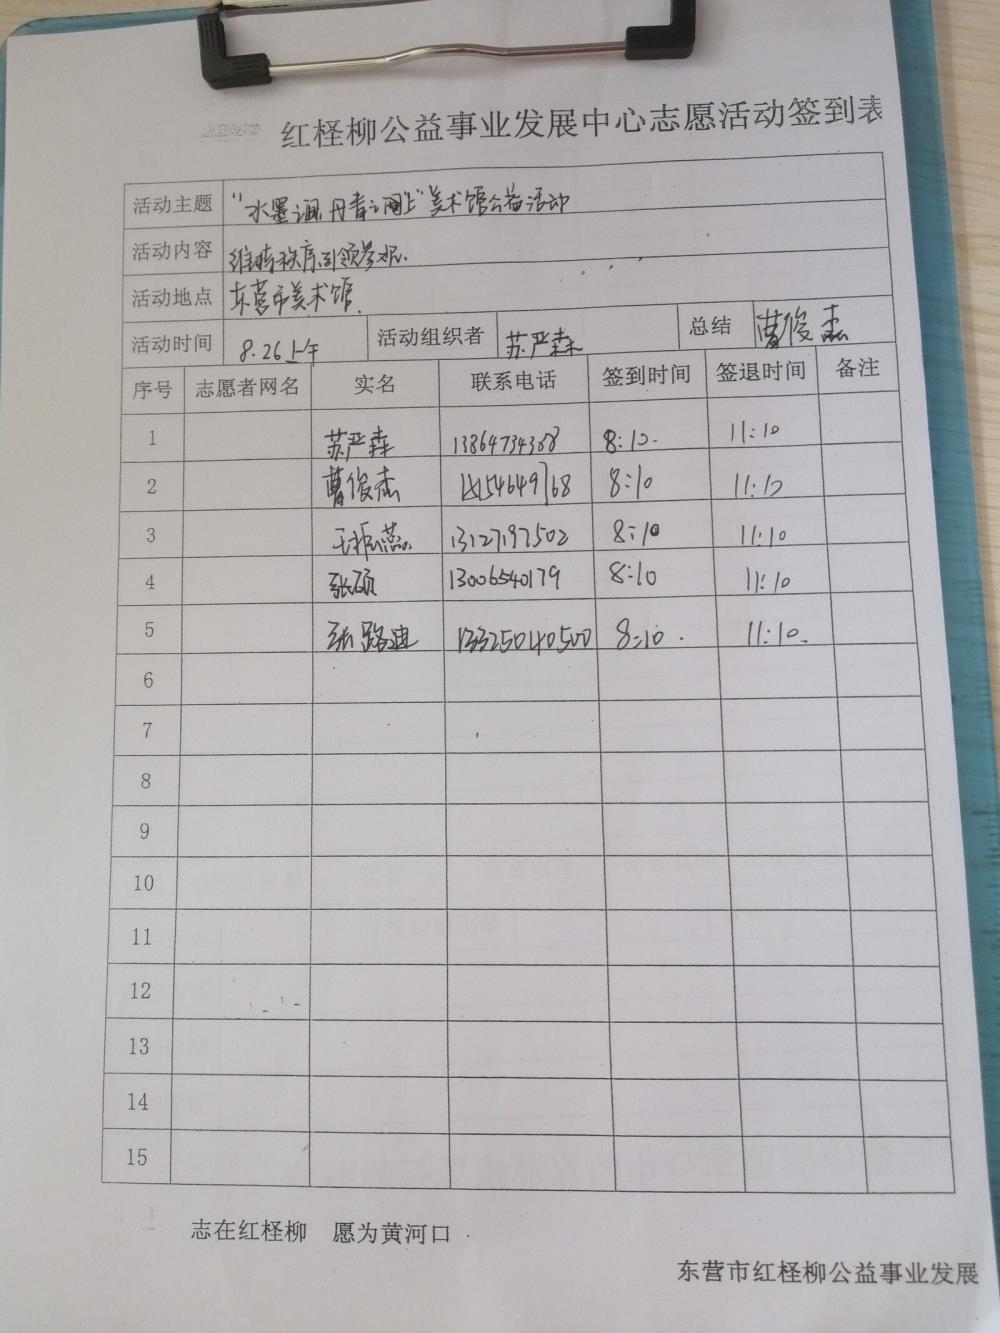 红柽柳公益事业发展中心志愿活动签到表
活动主题 "水墨 丹青 "美术馆公益活动
活动内容 维持秩序引领参观.
活动地点 东营市美术馆.
活动时间 8.26上午 活动组织者 苏严森 总结 曹俊杰
序号 志愿者网名 实名 联系电话 签到时间 签退时间 备注
1 苏严森 13864734388 8:10. 11:10
2 曹俊杰 8:10 11:10
3 王振燕 13127197502 8:10 11:10
4 张硕 13006540179 8:10 11:10
5 张路迪 13325040500 8:10. 11:10.
6
7
8
9
10
11
12
13
14
15
志在红柽柳 愿为黄河口
东营市红柽柳公益事业发展